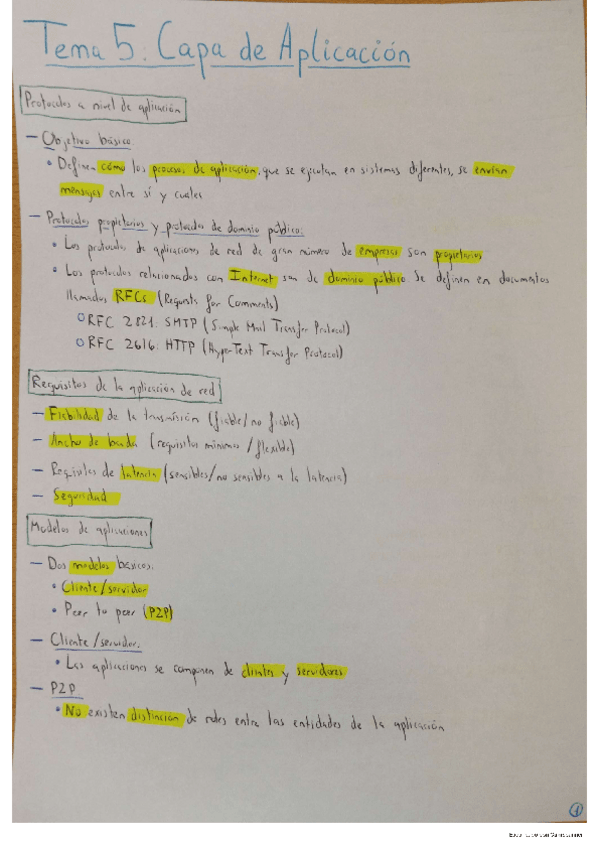 Tema 5: Capa de Aplicación
Protocolos a nivel de aplicación
— Objetivo básico:
• Definen cómo los procesos de aplicación, que se ejecutan en sistemas diferentes, se envían
mensajes entre sí y cuales
— Protocolos propietarios y protocolos de dominio público:
• Los protocolos de aplicaciones de red de gran número de empresas son propietarios
• Los protocolos relacionados con Internet son de dominio público. Se definen en documentos
llamados RFCs (Requests for Comments)
○ RFC 2821: SMTP (Simple Mail Transfer Protocol)
○ RFC 2616: HTTP (HyperText Transfer Protocol)
Requisitos de la aplicación de red
— Fiabilidad de la transmisión (fiable/no fiable)
— Ancho de banda (requisitos mínimos/flexible)
— Requisitos de latencia (sensibles/no sensibles a la latencia)
— Seguridad
Modelos de aplicaciones
— Dos modelos básicos:
• Cliente/servidor
• Peer to peer (P2P)
— Cliente/servidor:
• Las aplicaciones se componen de clientes y servidores
— P2P
• No existen distinción de roles entre las entidades de la aplicación
1